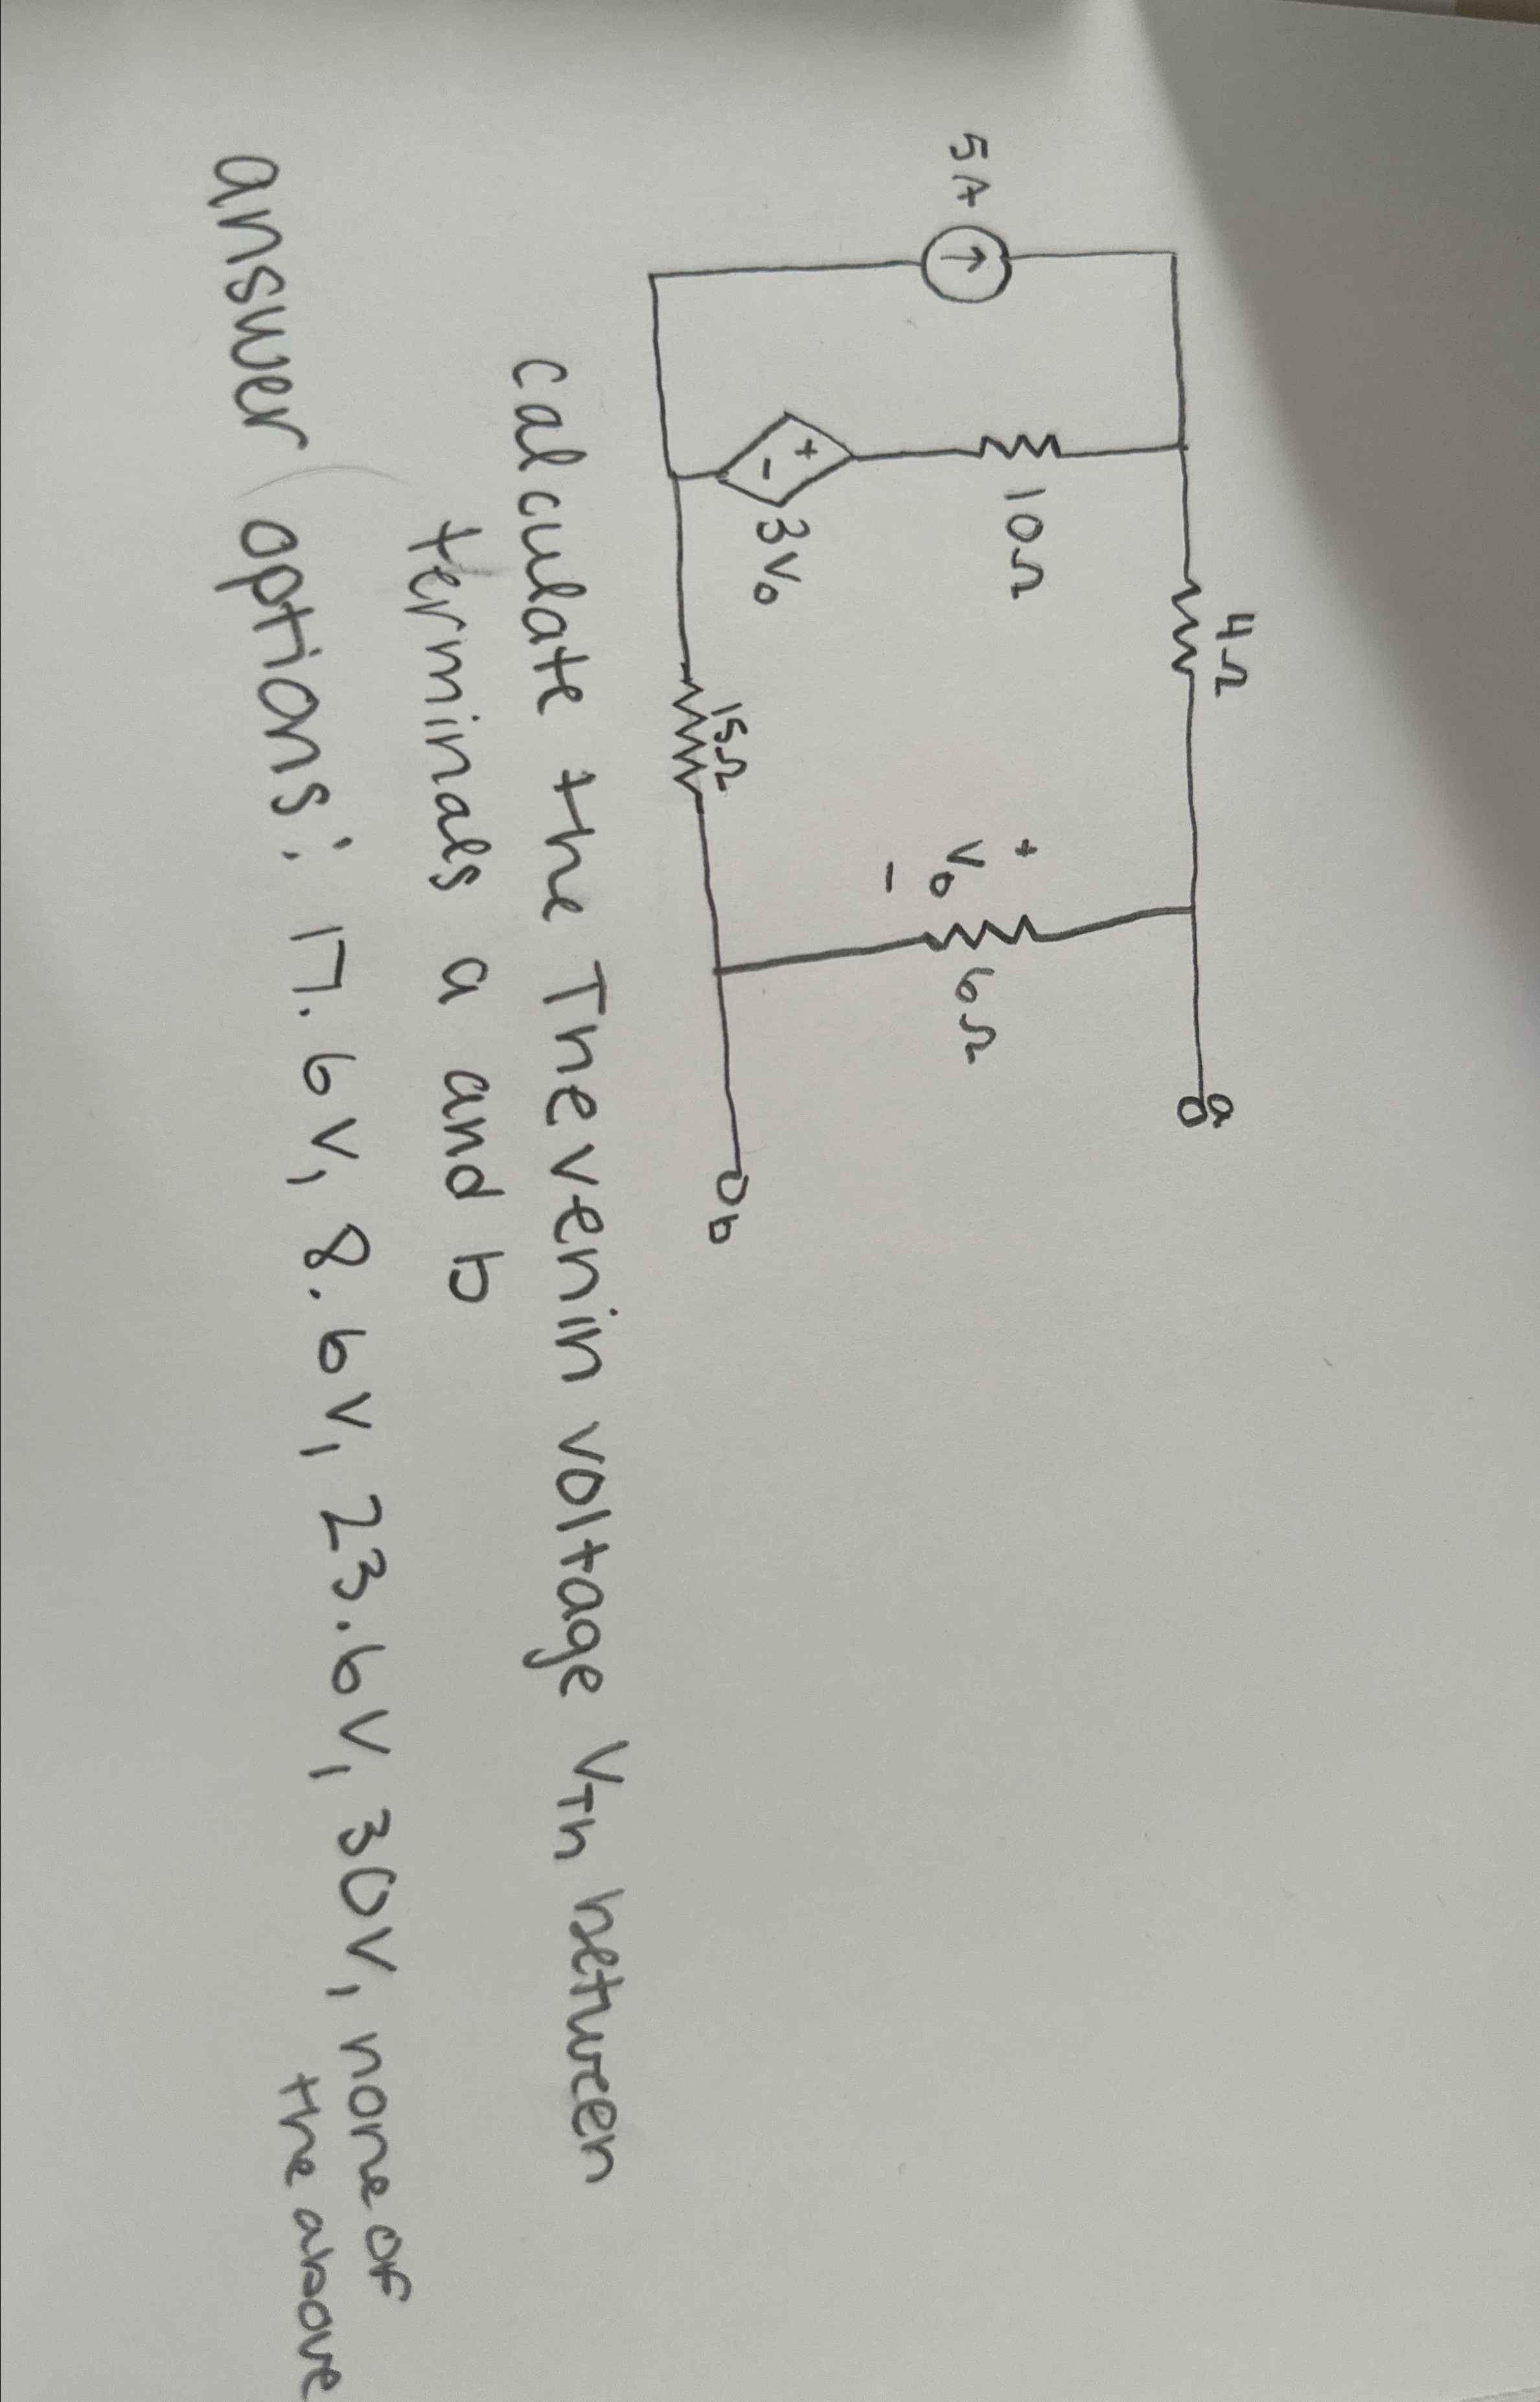 4Ω
a
5A
10Ω
+
V₀
-
6Ω
+
-
3V₀
15Ω
b
calculate the Thevenin voltage VTh between
terminals a and b
answer options: 17.6V, 8.6V, 23.6V, 30V, none of
the above